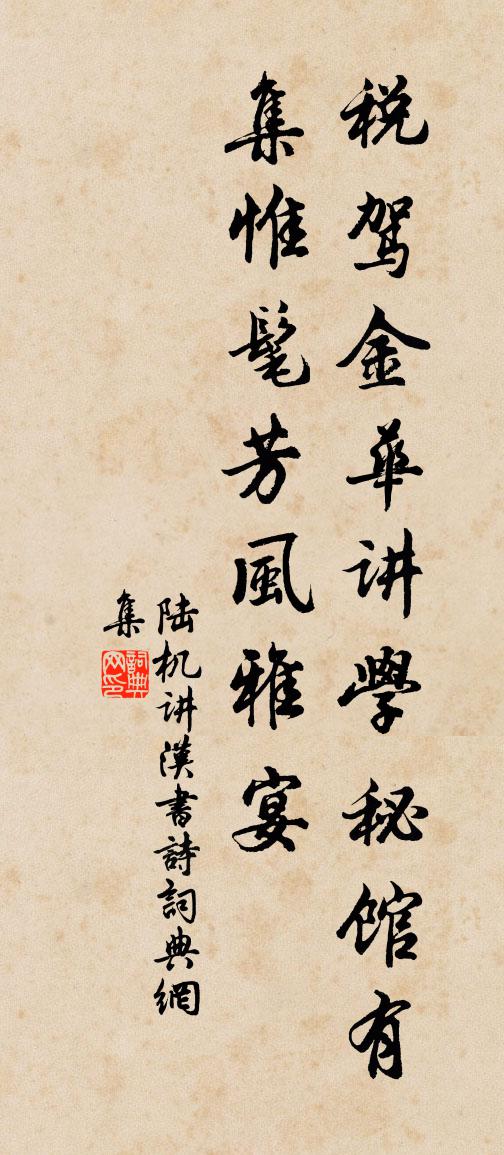 税驾金華讲學秘馆有
集惟髦芳風雅宴
陆机讲漢書詩詞典網
集
詞典
网印